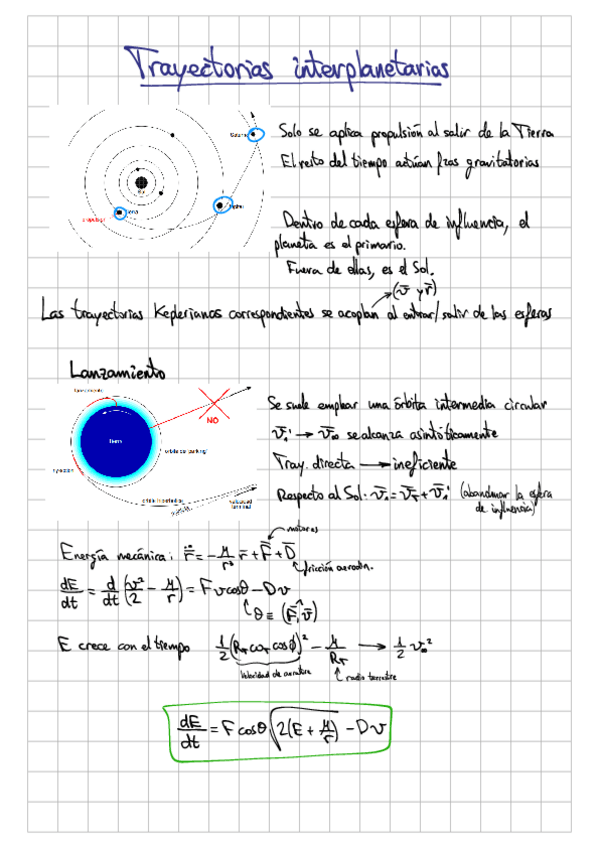 Trayectorias interplanetarias
Solo se aplica propulsión al salir de la Tierra
El resto del tiempo actúan fzas gravitatorias
Dentro de cada esfera de influencia, el
planeta es el primario.
Fuera de ellas, es el Sol.
(v̄ y r̄)
Las trayectorias Keplerianas correspondientes se acoplan al entrar/salir de las esferas
Lanzamiento
lanzamiento
NO
Tierra
órbita de "parking"
inyección
órbita hiperbólica
velocidad
terminal
Se suele emplear una órbita intermedia circular
v̄₁' → v̄∞ se alcanza asintóticamente
Tray. directa → ineficiente
Respecto al Sol: v̄₁ = v̄_T + v̄₁' (abandonar la esfera
de influencia)
motores
Energía mecánica: r̈ = -μ/r³ r̄ + F̄ + D̄
fricción aerodin.
dE/dt = d/dt (v²/2 - μ/r) = F v cosθ - D v
θ ≡ (F̄, v̄)
E crece con el tiempo 1/2 (R_T ω_T cos ϕ)² - μ/R_T → 1/2 v∞²
Velocidad de arrastre
radio terrestre
dE/dt = F cosθ √(2(E + μ/r)) - D v